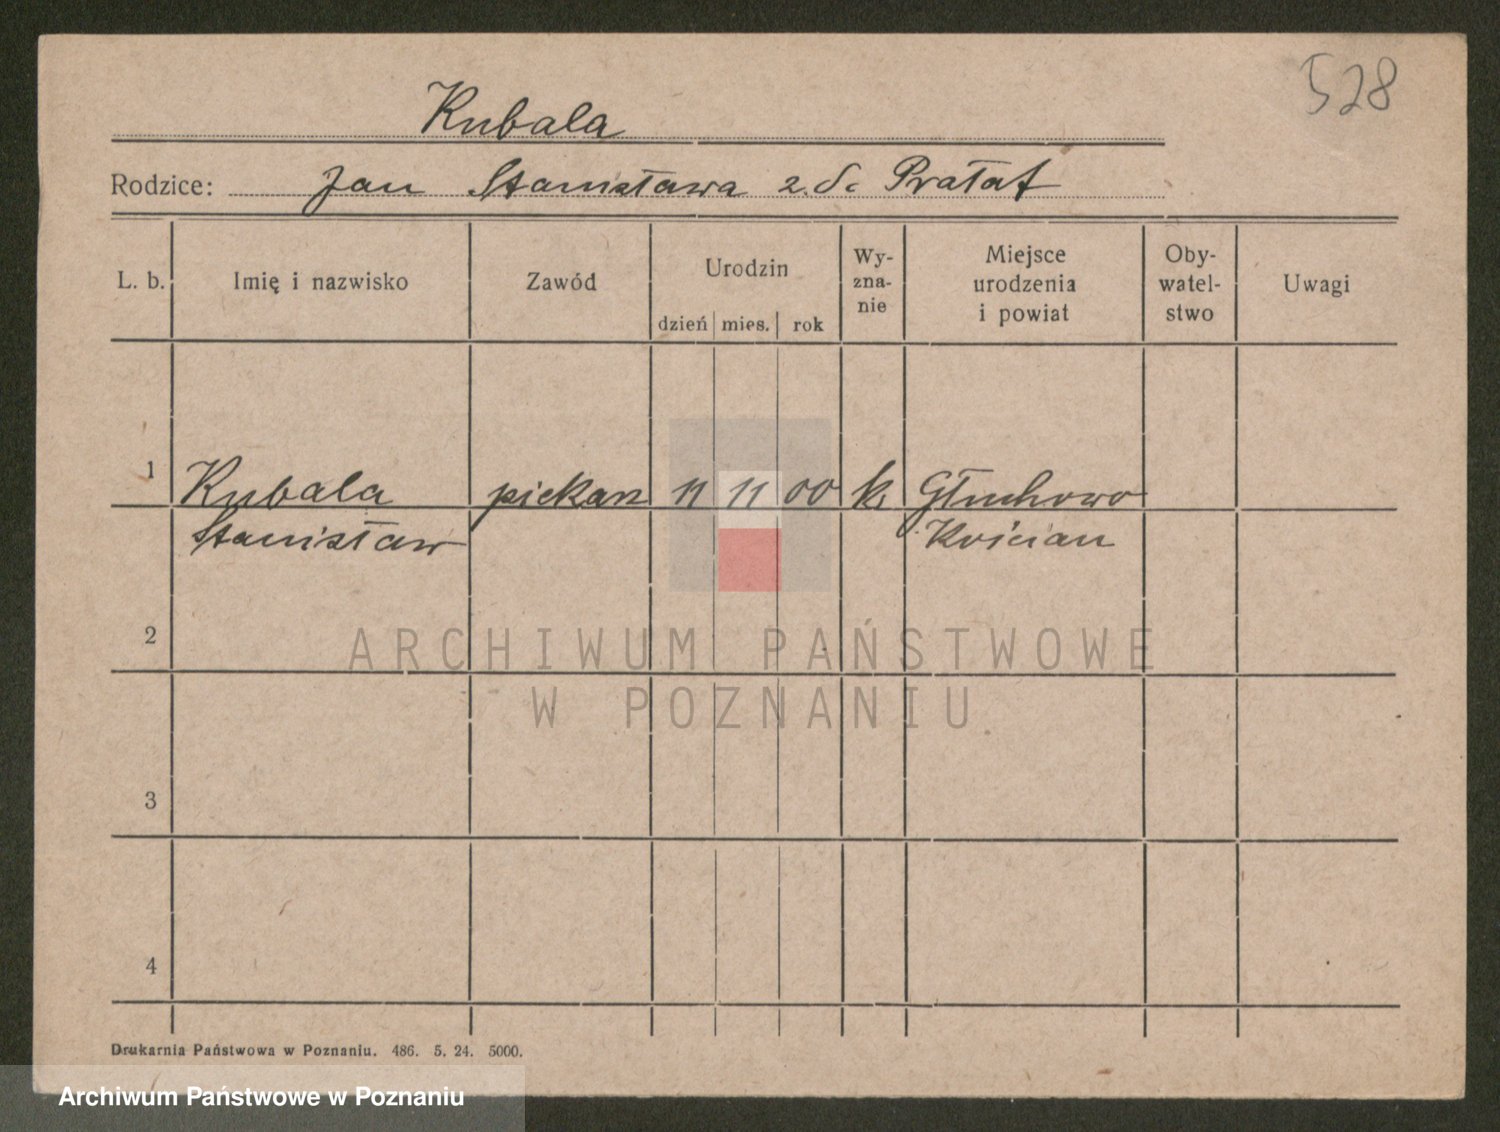 528
Kubala
Rodzice: Jan Stanisława z. d. Prałat
L. b. Imię i nazwisko Zawód Urodzin dzień mies. rok Wy-zna-nie Miejsce urodzenia i powiat Oby-watel-stwo Uwagi
1 Kubala piekarz 11 11 00 k. Głuchowo
Stanisław Kościan
2
ARCHIWUM PAŃSTWOWE
W POZNANIU
3
4
Drukarnia Państwowa w Poznaniu. 486. 5. 24. 5000.
Archiwum Państwowe w Poznaniu